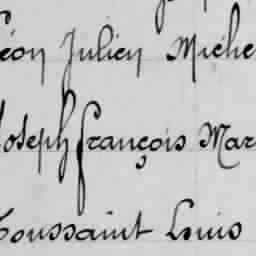 Léon Julien Miche
Joseph françois Mar
Toussaint Louis